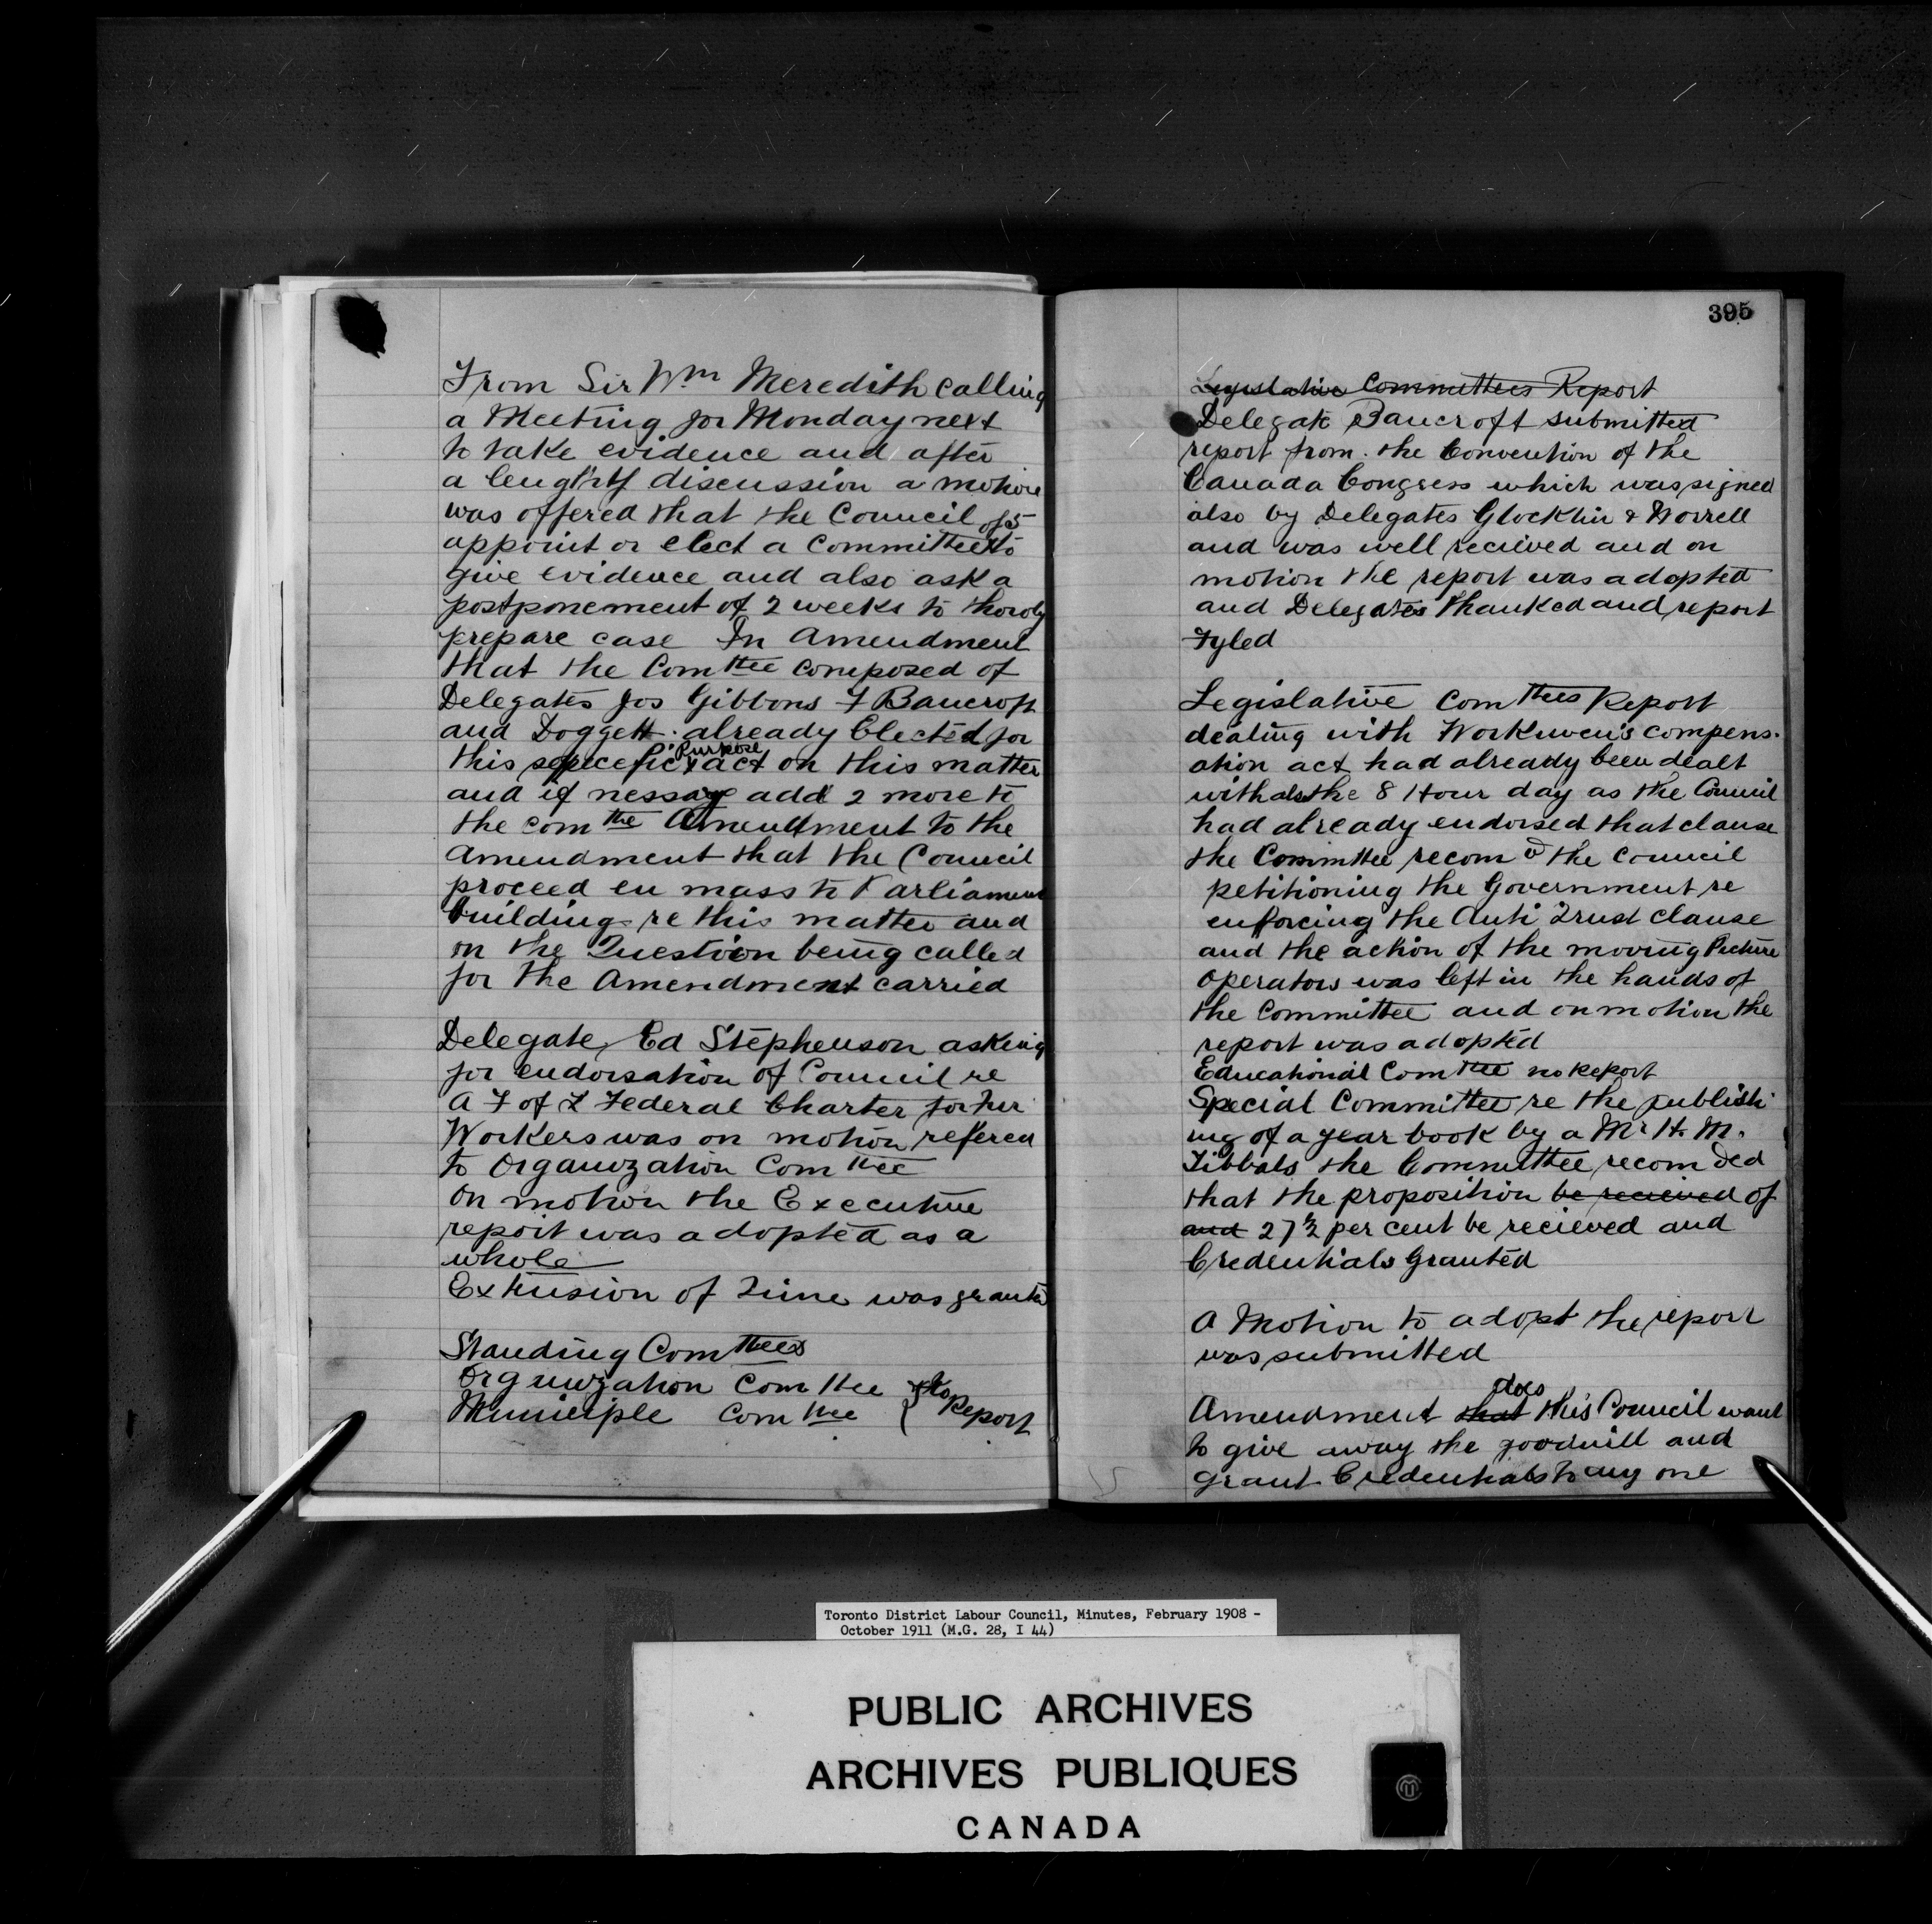 From Sir Wm Meredith calling
a Meeting for Monday next
to take evidence and after
a lengthy discussion a motion
was offered that the Council
appoint or elect a Committee of 5 to
give evidence and also ask a
postponement of 2 weeks to thoroly
prepare case In Amendment
that the Comttee composed of
Delegates Jos Gibbons F Bancroft
and Doggett already Elected for
this specefic Purpose act on this matter
and if nessary add 2 more to
the comttee Amendment to the
Amendment that the Council
proceed en mass to Parliament
building re this matter and
on the Question being called
for the Amendment carried
Delegate Ed Stephenson asking
for endorsation of Council re
A F of L Federal Charter for Fur
Workers was on motion refered
to Organization Comttee
On motion the Executive
report was adopted as a
whole
Extension of Time was granted
Standing Comttees
Organization Comttee } No
Municiple Comttee } Report
395
Legislative Committees Report
Delegate Bancroft submitted
report from the Convention of the
Canada Congress which was signed
also by Delegates Glocklin & Worrell
and was well recieved and on
motion the report was adopted
and Delegates thanked and report
Fyled
Legislative Comttees Report
dealing with Workmen's compens.
ation act had already been dealt
with also the 8 Hour day as the Council
had already endorsed that clause
the Committee recomd the Council
petitioning the Government re
enforcing the Anti Trust clause
and the action of the moving Picture
operators was left in the hands of
the Committee and on motion the
report was adopted
Educational Comttee no Report
Special Committee re the publish
ing of a year book by a Mr H. M.
Tibbals the Committee recomded
that the proposition be recieved of
and 27½ per cent be recieved and
Credentials Granted
A Motion to adopt the report
was submitted
Amendment that does this Council want
to give away the goodwill and
grant Credentials to any one
Toronto District Labour Council, Minutes, February 1908 -
October 1911 (M.G. 28, I 44)
PUBLIC ARCHIVES
ARCHIVES PUBLIQUES
CANADA